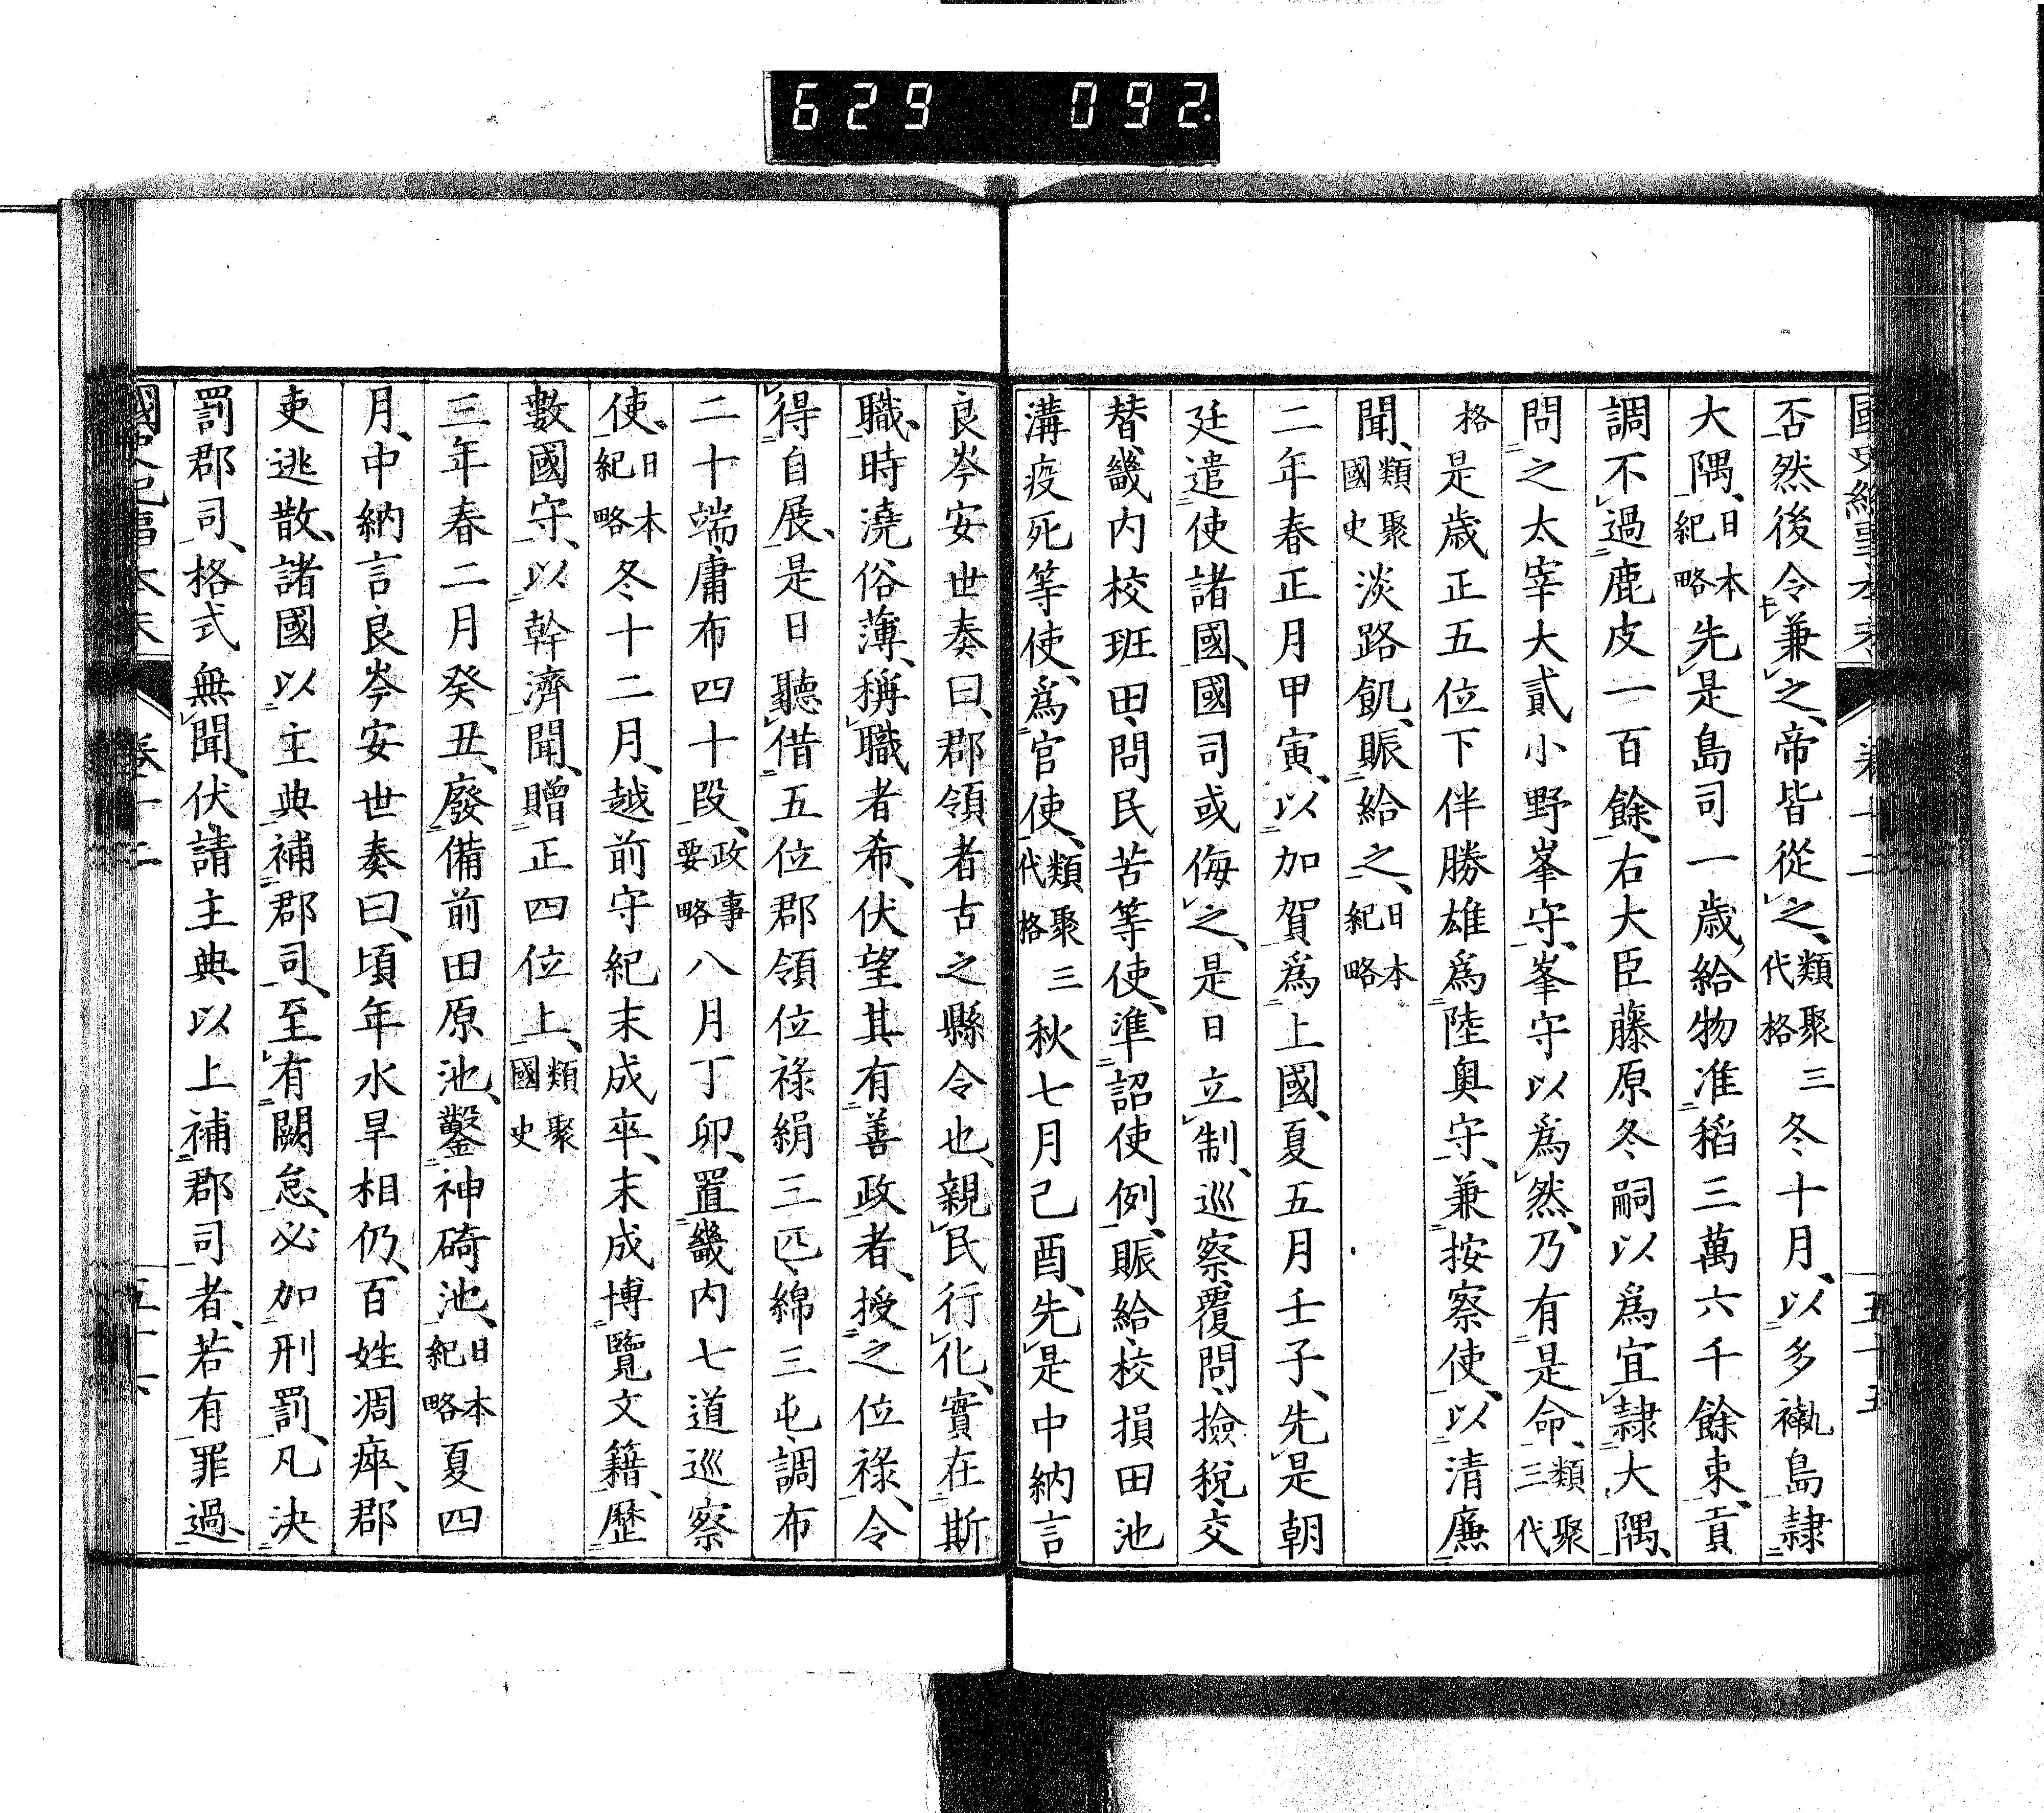 629 092.
否然後令兼之、帝皆從之、類聚三代格冬十月、以多褹島隷
大隅、日本紀略先是島司一歳給物准稻三萬六千餘束、貢
調不過鹿皮一百餘、右大臣藤原冬嗣以爲宜隷大隅、
問之太宰大貳小野峯守、峯守以爲然、乃有是命、類聚三代
格是歳正五位下伴勝雄爲陸奥守、兼按察使、以清廉
聞、類聚國史淡路飢、賑給之、日本紀略
二年春正月甲寅、以加賀爲上國、夏五月壬子、先是朝
廷遣使諸國、國司或侮之、是日立制、巡察、覆問、撿税、交
替、畿内校班田、問民苦等使、準詔使例、賑給、校損田池
溝疫死等使、爲官使、類聚三代格秋七月己酉、先是中納言
良岑安世奏曰、郡領者古之縣令也、親民行化、實在斯
職、時澆俗薄、稱職者希、伏望其有善政者、授之位祿、令
得自展、是日聽借五位郡領位祿絹三匹、綿三屯、調布
二十端、庸布四十段、政事要略八月丁卯、置畿内七道巡察
使、日本紀略冬十二月、越前守紀末成卒、末成博覽文籍、歷
數國守、以幹濟聞、贈正四位上、類聚國史
三年春二月癸丑、廢備前田原池、鑿神碕池、日本紀略夏四
月、中納言良岑安世奏曰、頃年水旱相仍、百姓凋瘁、郡
吏逃散、諸國以主典補郡司、至有闕怠、必加刑罰、凡決
罰郡司、格式無聞、伏請主典以上補郡司者、若有罪過、
國史紀事本末 卷十二